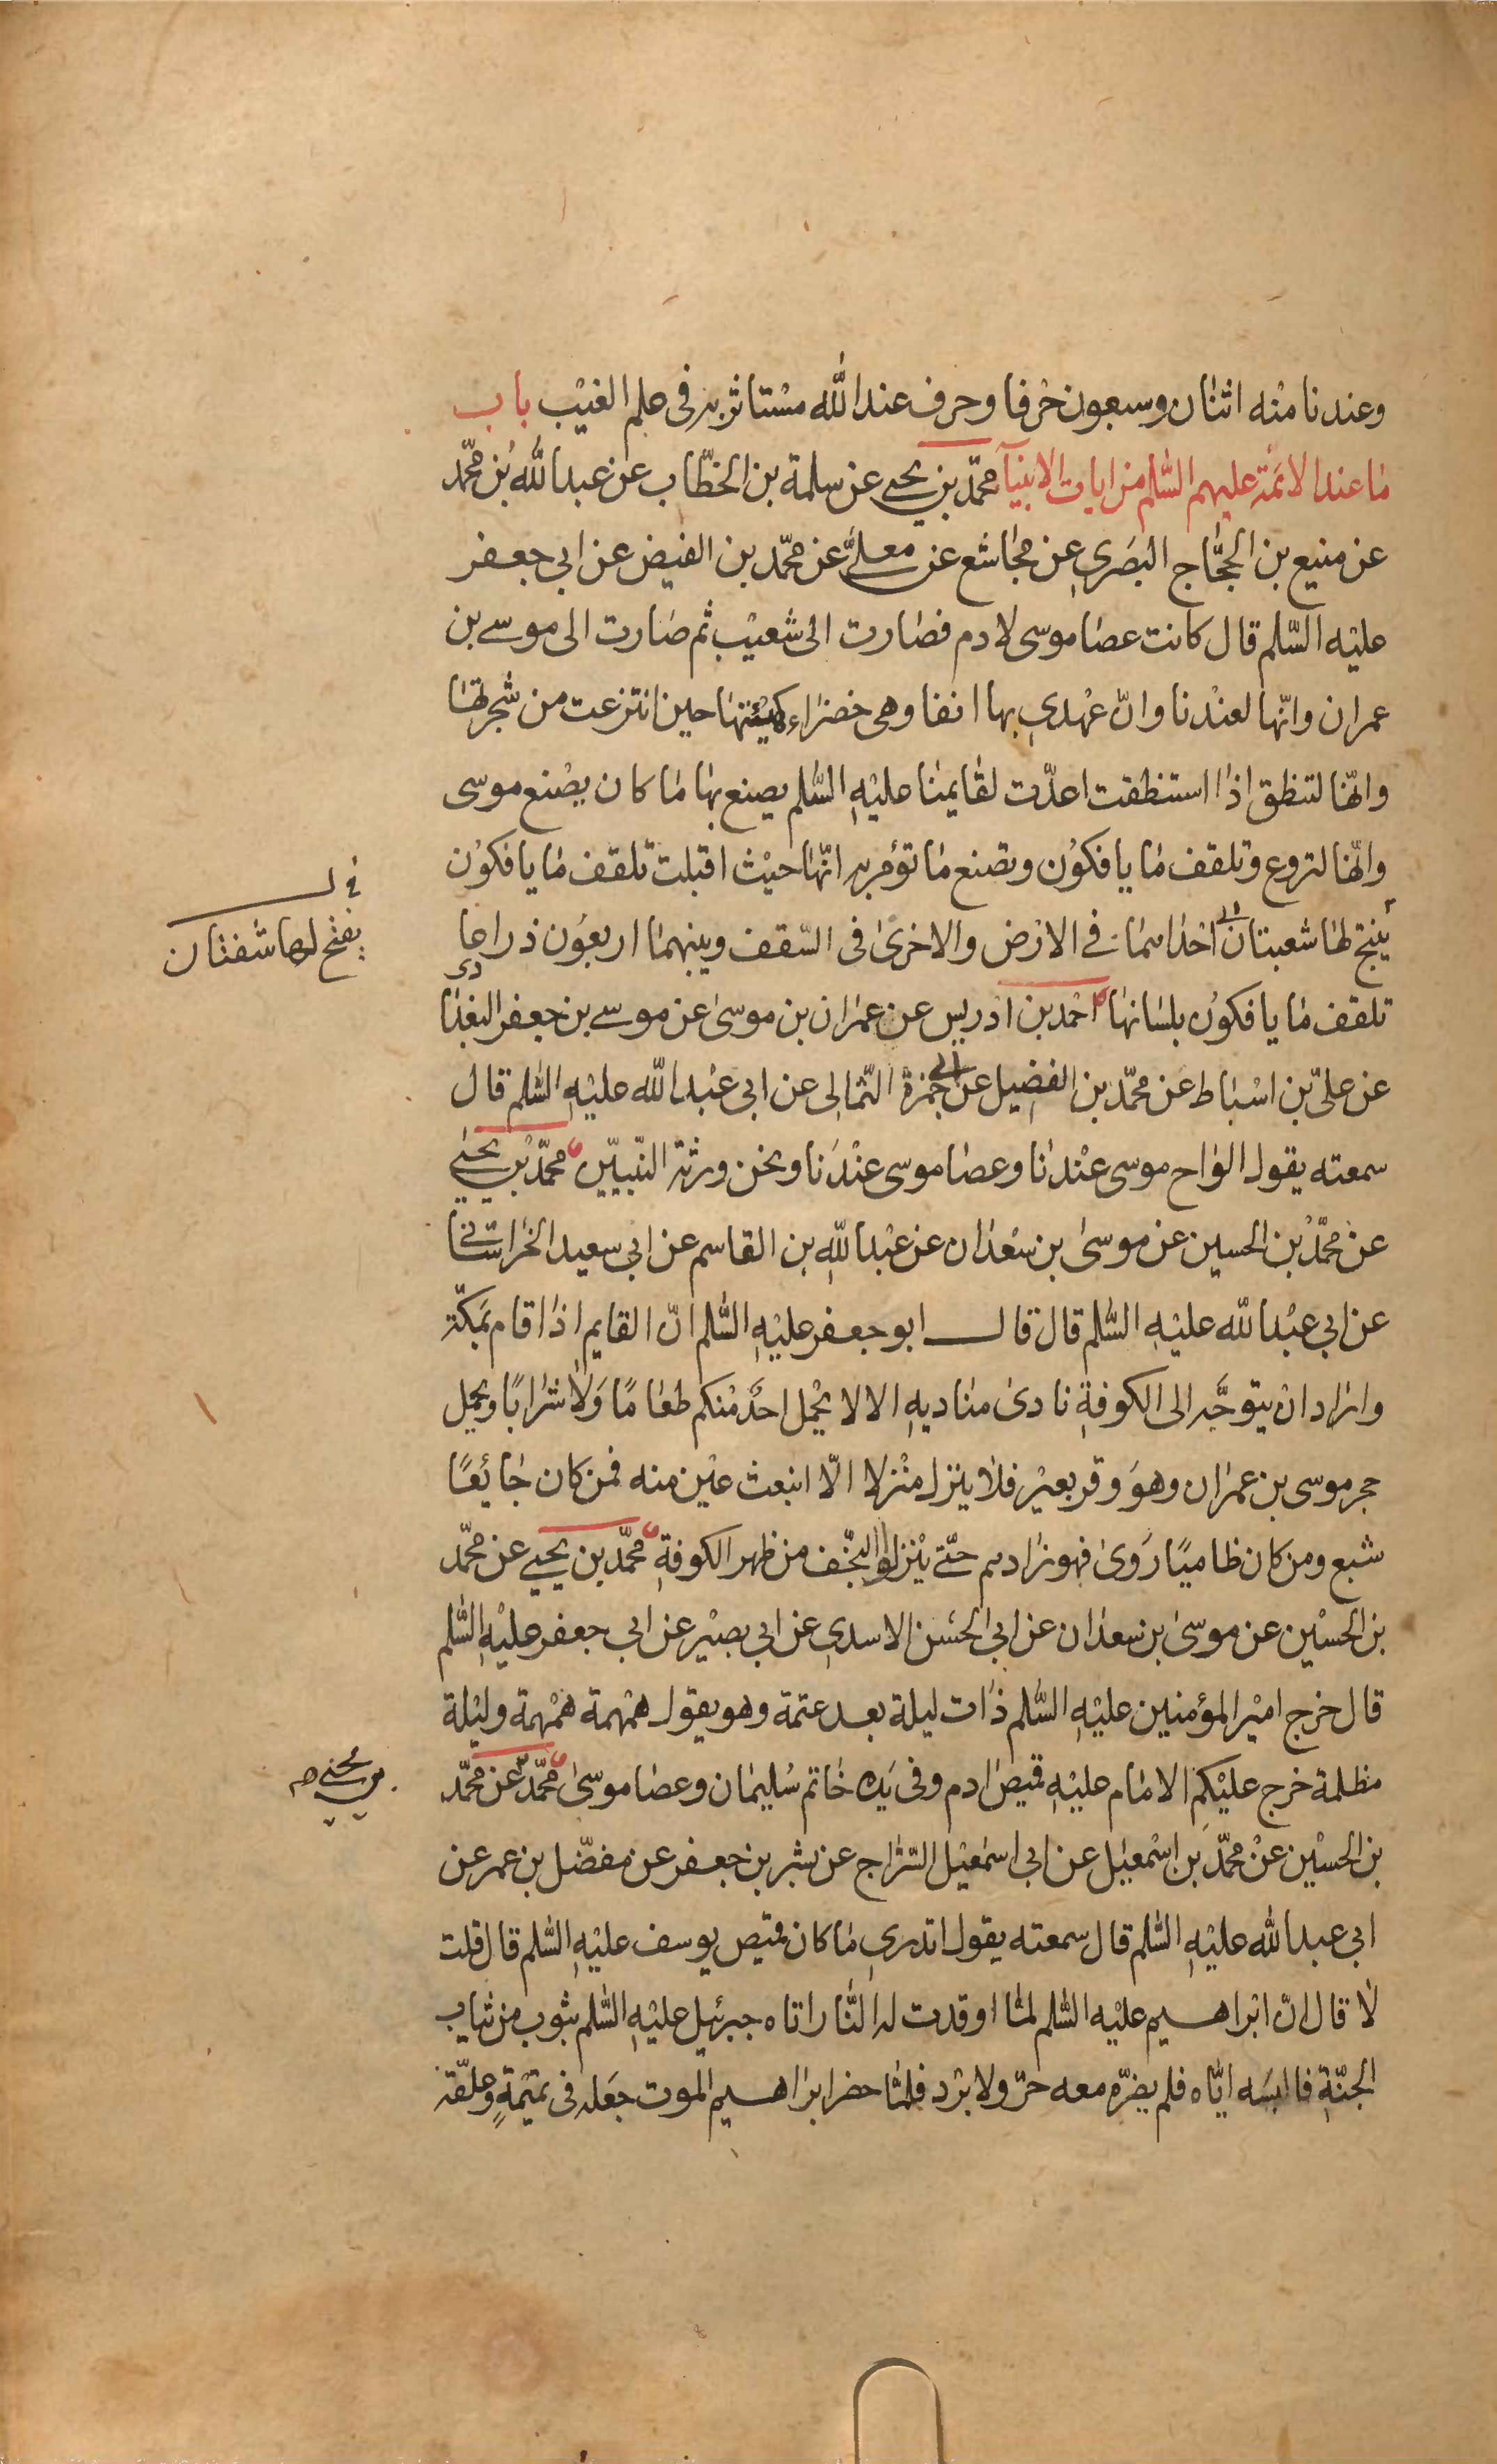 وعندنا منه اثنان وسبعون حرفا وحرف عند الله مستاثر به فى علم الغيب باب
ما عند الائمة عليهم السّلم من ايات الانبيآء محمّد بن يحيى عن سلمة بن الخطّاب عن عبدالله بن محمّد
عن منيع بن الحجّاج البصري عن مجاشع عن معلّى عن محمّد بن الفيض عن ابي جعفر
عليه السّلم قال كانت عصا موسى لادم فصارت الى شعيب ثم صارت الى موسى بن
عمران وانّها لعندنا وانّ عهدي بها انفا وهى خضراء كهيئتها حين انتزعت من شجرتها
وانّها لتنطق اذا استنطقت اعدّت لقايمنا عليه السّلم يصنع بها ما كان يصنع موسى
وانّها لتروع وتلقف ما يافكون وتصنع ما تؤمر به انّها حيث اقبلت تلقف ما يافكون
ينتج لها شعبتان احداهما فى الارض والاخرى فى السّقف وبينهما اربعون ذراعا
تلقف ما يافكون بلسانها احمد بن ادريس عن عمران بن موسى عن موسى بن جعفر البغدادى
عن علىّ بن اسباط عن محمّد بن الفضيل عن ابى حمزة الثّمالى عن ابى عبدالله عليه السّلم قال
سمعته يقول الواح موسى عندنا وعصا موسى عندنا ونحن ورثة النّبيّين محمّد بن يحيى
عن محمّد بن الحسين عن موسى بن سعدان عن عبدالله بن القاسم عن ابي سعيد الخراسانى
عن ابي عبدالله عليه السّلم قال قال ابو جعفر عليه السّلم انّ القايم اذا قام بمكّة
واراد ان يتوجّه الى الكوفة نادى مناديه الا لا يحمل احد منكم طعامًا ولا شرابًا ويحمل
حجر موسى بن عمران وهو وقر بعير فلا ينزل منزلا الّا انبعث عين منه فمن كان جائعًا
شبع ومن كان ظاميًا روى فهو زادهم حتّى ينزلوا النّجف من ظهر الكوفة محمّد بن يحيى عن محمّد
بن الحسين عن موسى بن سعدان عن ابى الحسن الاسدي عن ابي بصير عن ابي جعفر عليه السّلم
قال خرج امير المؤمنين عليه السّلم ذات ليلة بعد عتمة وهو يقول همهمة همهمة وليلة
مظلمة خرج عليكم الامام عليه قميص ادم وفى يده خاتم سليمان وعصا موسى محمّد عن محمّد
بن الحسين عن محمّد بن اسمعيل عن ابى اسمعيل السّرّاج عن بشر بن جعفر عن مفضّل بن عمر عن
ابى عبدالله عليه السّلم قال سمعته يقول اتدري ما كان قميص يوسف عليه السّلم قال قلت
لا قال انّ ابراهيم عليه السّلم لمّا اوقدت له النّار اتاه جبرئيل عليه السّلم بثوب من ثياب
الجنّة فالبسه ايّاه فلم يضرّه معه حرّ ولا برد فلمّا حضر ابراهيم الموت جعله فى تميمة وعلّقه
يفتح لها شفتان
بن يحيى صح